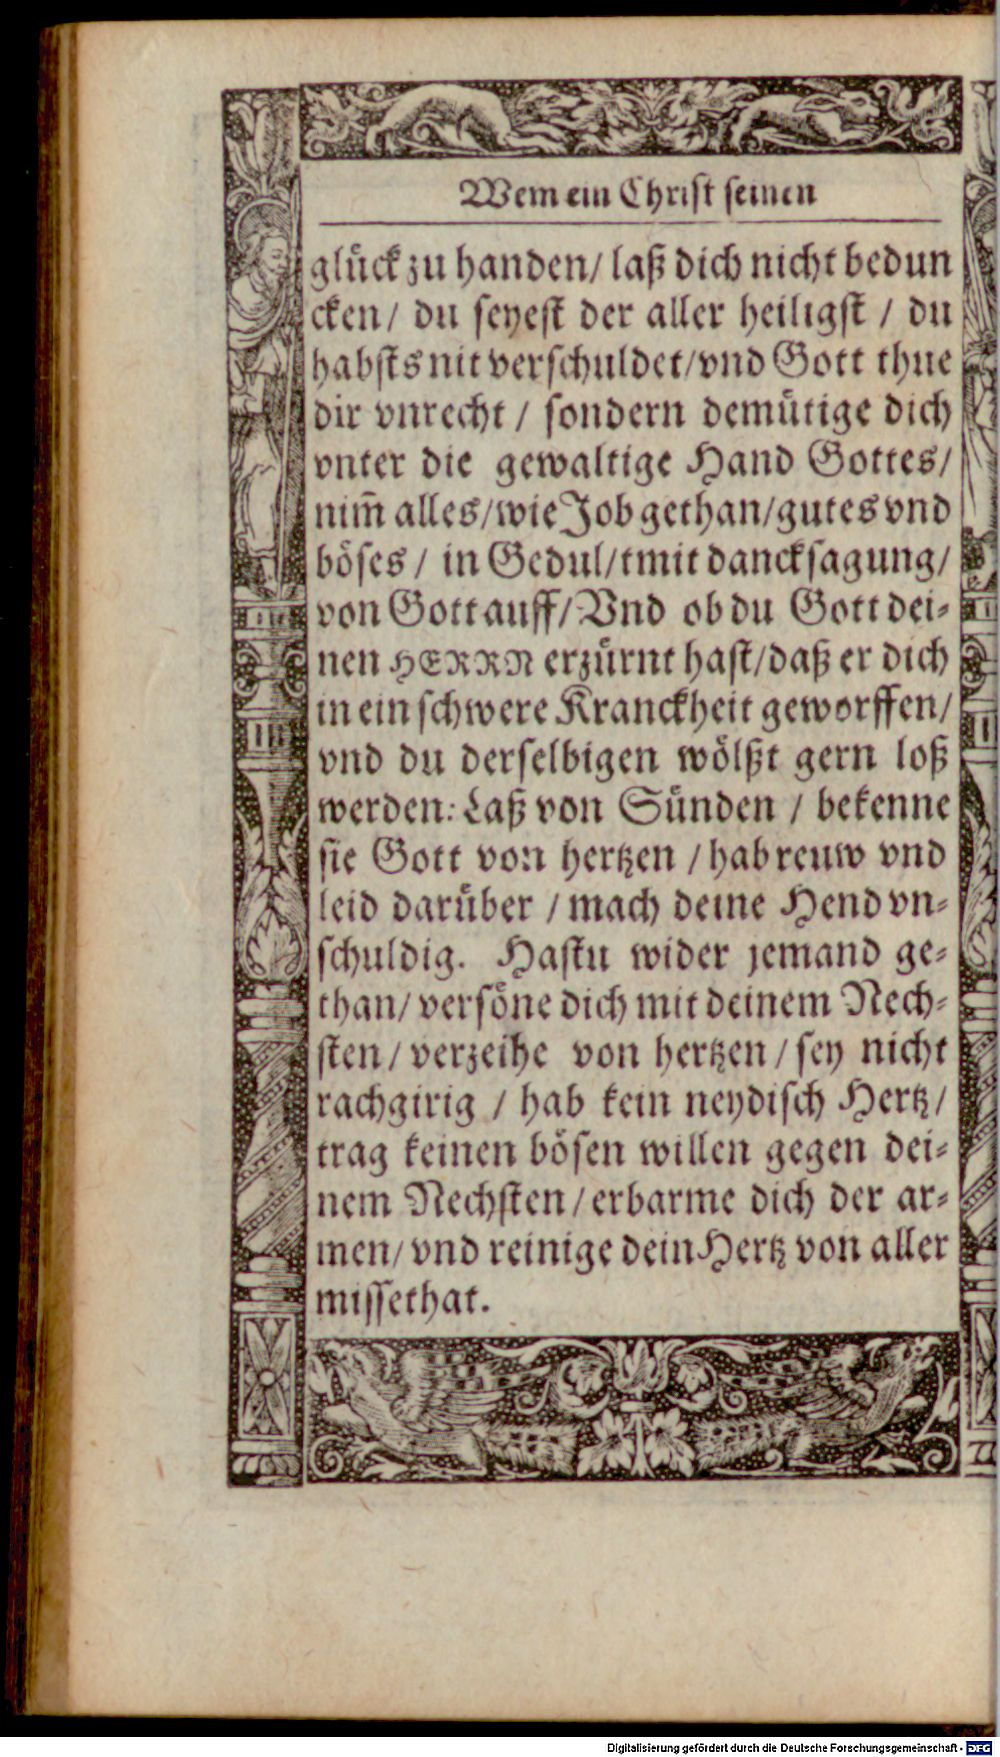 Wem ein Christ seinen
glück zu handen/ laß dich nicht bedun
cken/ du seyest der aller heiligst / du
habsts nit verschuldet/vnd Gott thue
dir vnrecht / sondern demütige dich
vnter die gewaltige Hand Gottes/
nim̃ alles/wie Job gethan/gutes vnd
böses / in Gedul/tmit dancksagung/
von Gott auff/Vnd ob du Gott dei-
nen HERRN erzürnt hast/daß er dich
in ein schwere Kranckheit geworffen/
vnd du derselbigen wölßt gern loß
werden: Laß von Sünden / bekenne
sie Gott von hertzen / hab reuw vnd
leid darüber / mach deine Hend vn-
schuldig. Hastu wider jemand ge-
than/ versöne dich mit deinem Nech-
sten/ verzeihe von hertzen / sey nicht
rachgirig / hab kein neydisch Hertz/
trag keinen bösen willen gegen dei-
nem Nechsten/ erbarme dich der ar-
men/ vnd reinige dein Hertz von aller
missethat.
Digitalisierung gefördert durch die Deutsche Forschungsgemeinschaft - DFG